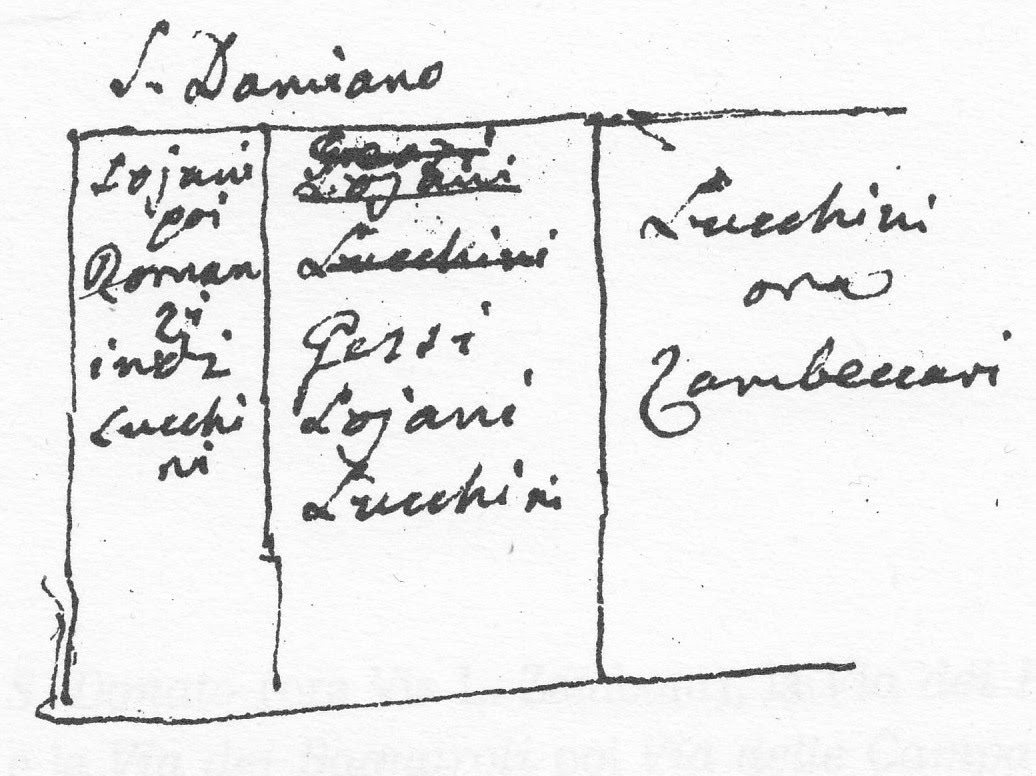 S. Damiano
Lojani
poi
Roman
zi
indi
Lucchi
ni
Lojani
Lucchini
Gessi
Lojani
Lucchini
Lucchini
ora
Zambeccari